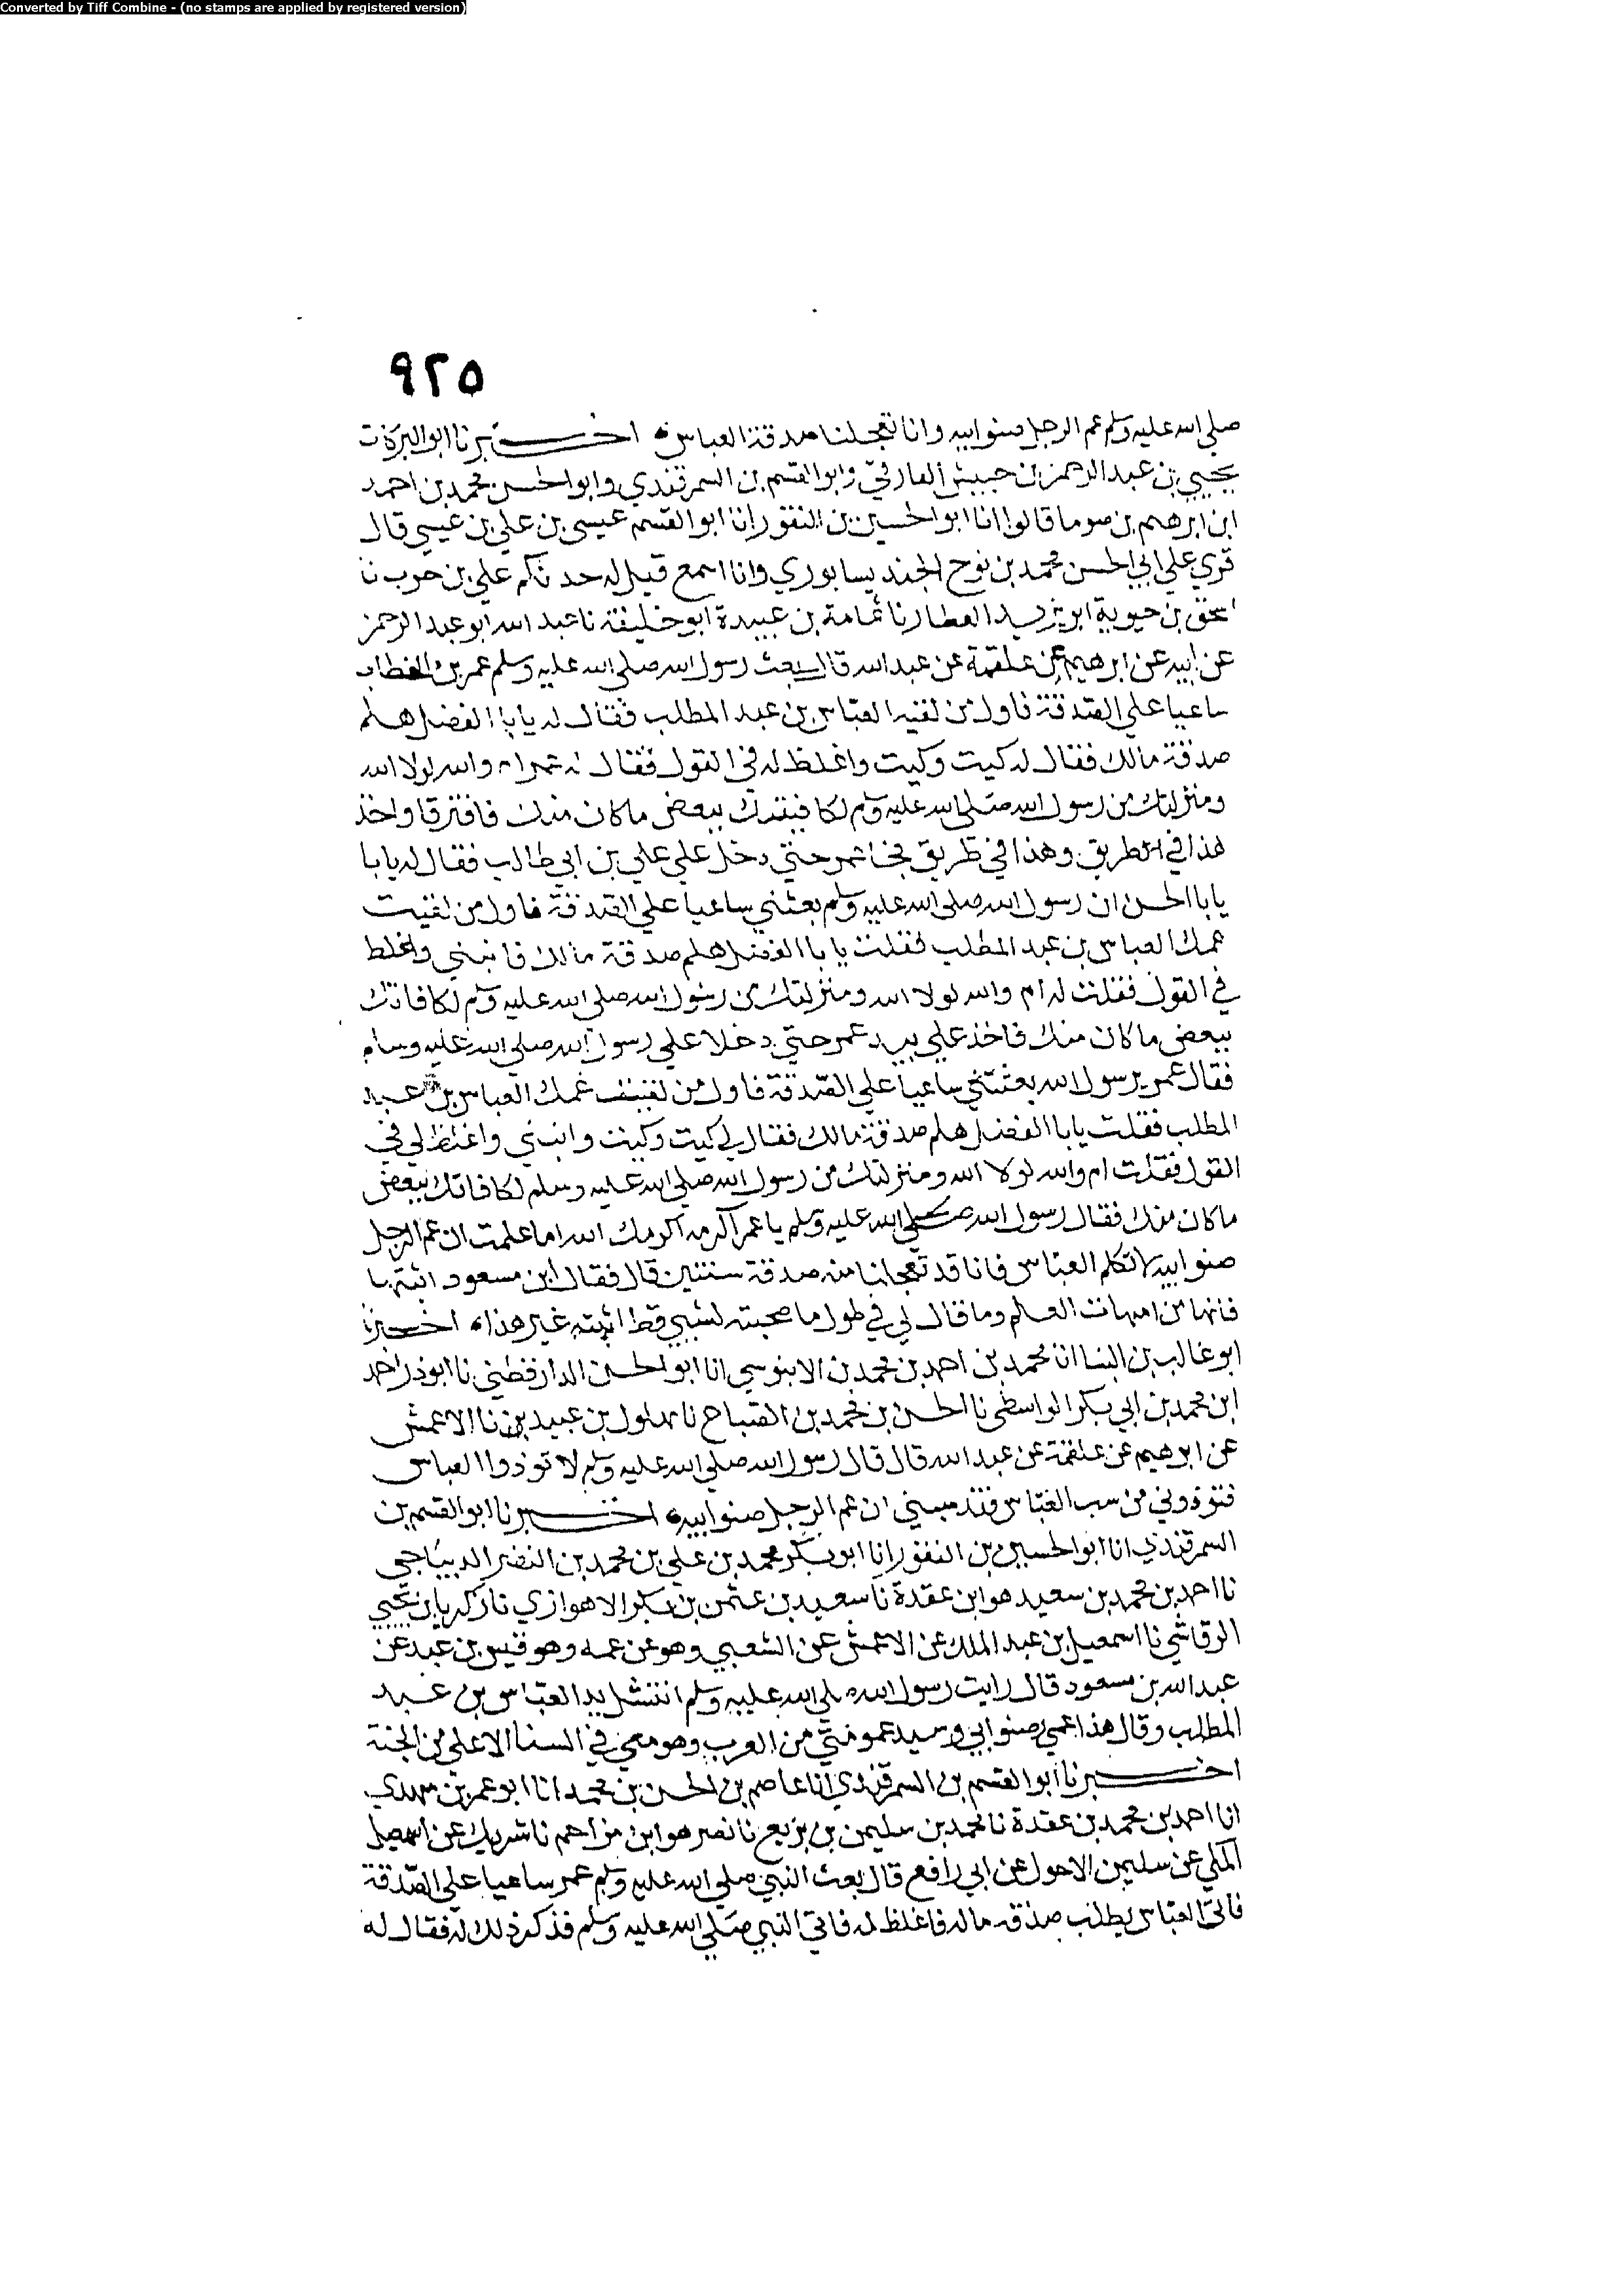 Converted by Tiff Combine - (no stamps are applied by registered version)
٩٢٥
صلى الله عليه وسلم عم الرجل صنو ابيه وانا تعجلنا صدقة العباس اخبرنا ابو البركات
يحيى بن عبد الرحمن بن حبيش الفارقي وابو القسم بن السمرقندي وابو الحسن محمد بن احمد
ابن ابرهيم بن صوما قالوا انا ابو الحسين بن النقور انا ابو القسم عيسى بن علي بن عيسى قال
قري على ابي الحسن محمد بن نوح الجنديسابوري وانا اسمع قيل له حدثكم علي بن حرب نا
اسحق بن حيوية ابن يزيد العطار نا ثمامة بن عبيدة ابو خليفة نا عبد الله ابو عبد الرحمن
عن ابيه عن ابرهيم عن علقمة عن عبد الله قال بعث رسول الله صلى الله عليه وسلم عمر بن الخطاب
ساعيا على الصدقة فاول من لقيه العباس بن عبد المطلب فقال له يا با الفضل هلم
صدقة مالك فقال له كيت وكيت واغلظ له في القول فقال له عمر ام والله لولا الله
ومنزلتك من رسول الله صلى الله عليه وسلم لكافيتك ببعض ما كان منك فافترقا واخذ
هذا في طريق وهذا في طريق فجا عمر حتى دخل على علي بن ابي طالب فقال له يابا
يابا الحسن ان رسول الله صلى الله عليه وسلم بعثني ساعيا على الصدقة فاول من لقيت
عمك العباس بن عبد المطلب فقلت يا با الفضل هلم صدقة مالك فانبني واغلظ
في القول فقلت له ام والله لولا الله ومنزلتك من رسول الله صلى الله عليه وسلم لكافاتك
ببعض ما كان منك فاخذ علي بيد عمر حتى دخلا على رسول الله صلى الله عليه وسلم
فقال عمر يرسول الله بعثتني ساعيا على الصدقة فاول من لقيني عمك العباس بن عبد
المطلب فقلت يابا الفضل هلم صدقة مالك فقال لي كيت وكيت وانبني واغلظ لي في
القول فقلت ام والله لولا الله ومنزلتك من رسول الله صلى الله عليه وسلم لكافاتك ببعض
ما كان منك فقال رسول الله صلى الله عليه وسلم يا عمر اكرمه اكرمك الله اما علمت ان عم الرجل
صنو ابيه لا تكلم العباس فانا قد تعجلنا منه صدقة سنتين قال فقال ابن مسعود اثبتها
فانها من امهات العلم وما قال لي في طول ما صحبته لشيي قط اثبته غير هذا اخبرنا
ابو غالب بن البنا انا محمد بن احمد بن محمد بن الابنوسي انا ابو الحسن الدارقطني نا ابو ذر احمد
ابن محمد بن ابي بكر الواسطي نا الحسن بن محمد بن الصباح نا بهلول بن عبيد نا الاعمش
عن ابرهيم عن علقمة عن عبد الله قال قال رسول الله صلى الله عليه وسلم لا توذوا العباس
فتوذوني من سب العباس فقد سبني ان عم الرجل صنو ابيه اخبرنا ابو القسم بن
السمرقندي انا ابو الحسين بن النقور انا ابو بكر محمد بن علي بن محمد بن النضر الديباجي
نا احمد بن محمد بن سعيد هو ابن عقدة نا سعيد بن عثمن بن بكر الاهوازي نا زكريا بن يحيى
الرقاشي نا اسمعيل بن عبد الملك عن الاعمش عن الشعبي وهو عن عمه وهو قيس بن عبد عن
عبد الله بن مسعود قال رايت رسول الله صلى الله عليه وسلم انتشل يد العباس بن عبد
المطلب وقال هذا عمي صنو ابي وسيد عمومتي من العرب وهو معي في السنا الاعلى من الجنة
اخبرنا ابو القسم بن السمرقندي انا عاصم بن الحسن بن محمد انا ابو عمر بن مهدي
انا احمد بن محمد بن عقدة نا محمد بن سليمن بن بزيع نا نصر هو ابن مزاحم نا شريك عن اسمعيل
المكي عن سليمن الاحول عن ابي رافع قال بعث النبي صلى الله عليه وسلم عمر ساعيا على الصدقة
فاتى العباس يطلب صدقه ماله فاغلظ له فاتى النبي صلى الله عليه وسلم فذكر ذلك له فقال له